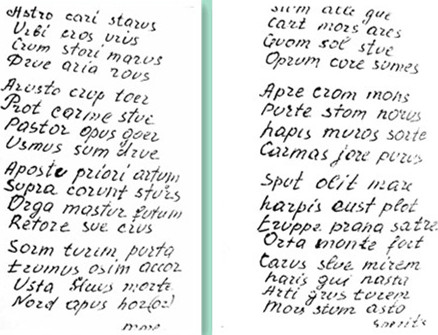 Astro cari starus
Urbi eros urus
Crum stori marus
Drue aria rous
Arusto crup toer
Prot carine stue
Pastor opus quer
Usmus sum drue
Aposte priori artum
Supra corunt sturs
Orga mastur futum
Retore sue crus
Sorm turim purta
trumus osim accor
Usta morte
Nord apus
more
sum alle que
Cart mors ares
Quom sol stue
Oprum core sumes
Apre crom mons
Purte stom norus
hapis muros sorte
Carmas jore purus
Sput olit mare
harpis cust plot
truppe prana satre
Orta monte fort
Carus slue mirem
haris qui nasta
Arti grus turem
Mors stum asto